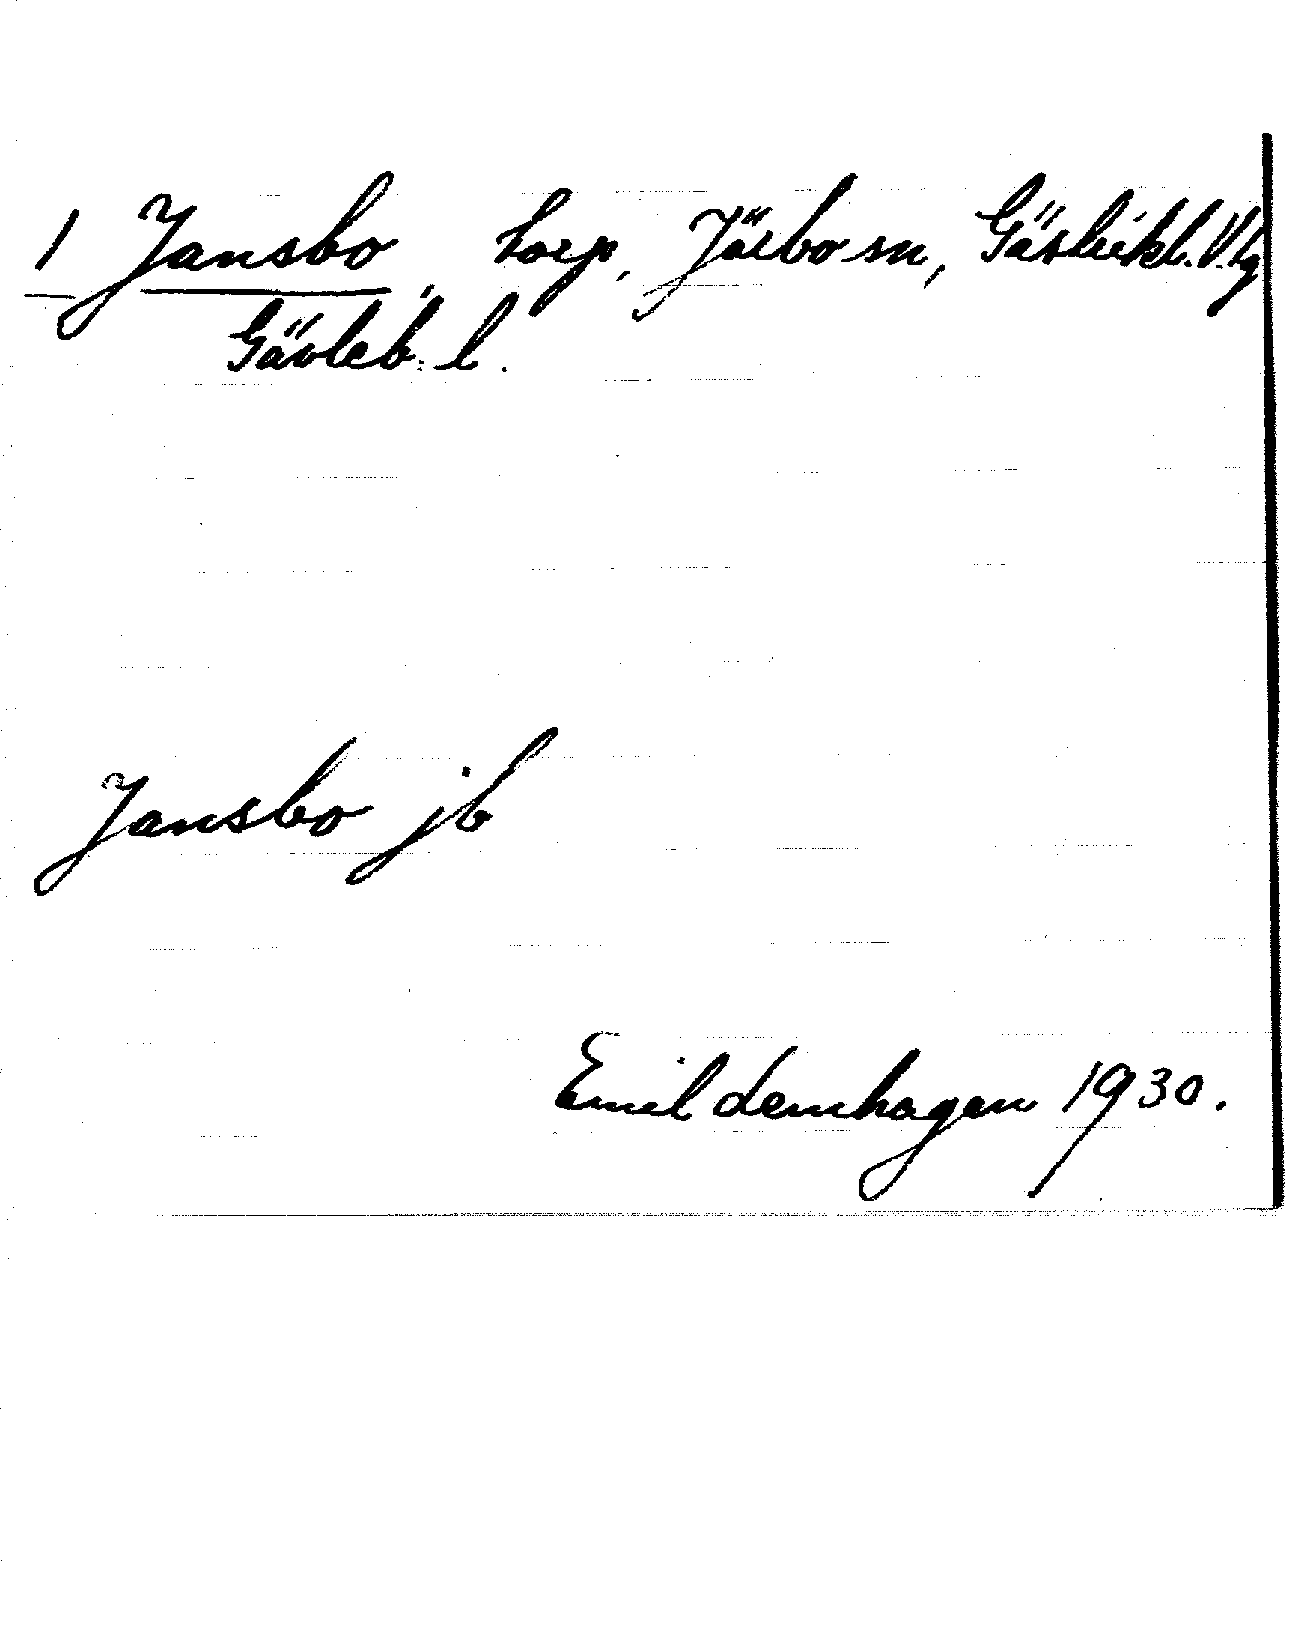 1 Jansbo, torp, Järbo sn, Gästrikl. V. tg
Gävleb. l.
Jansbo jb
Emil Lemhagen 1930.